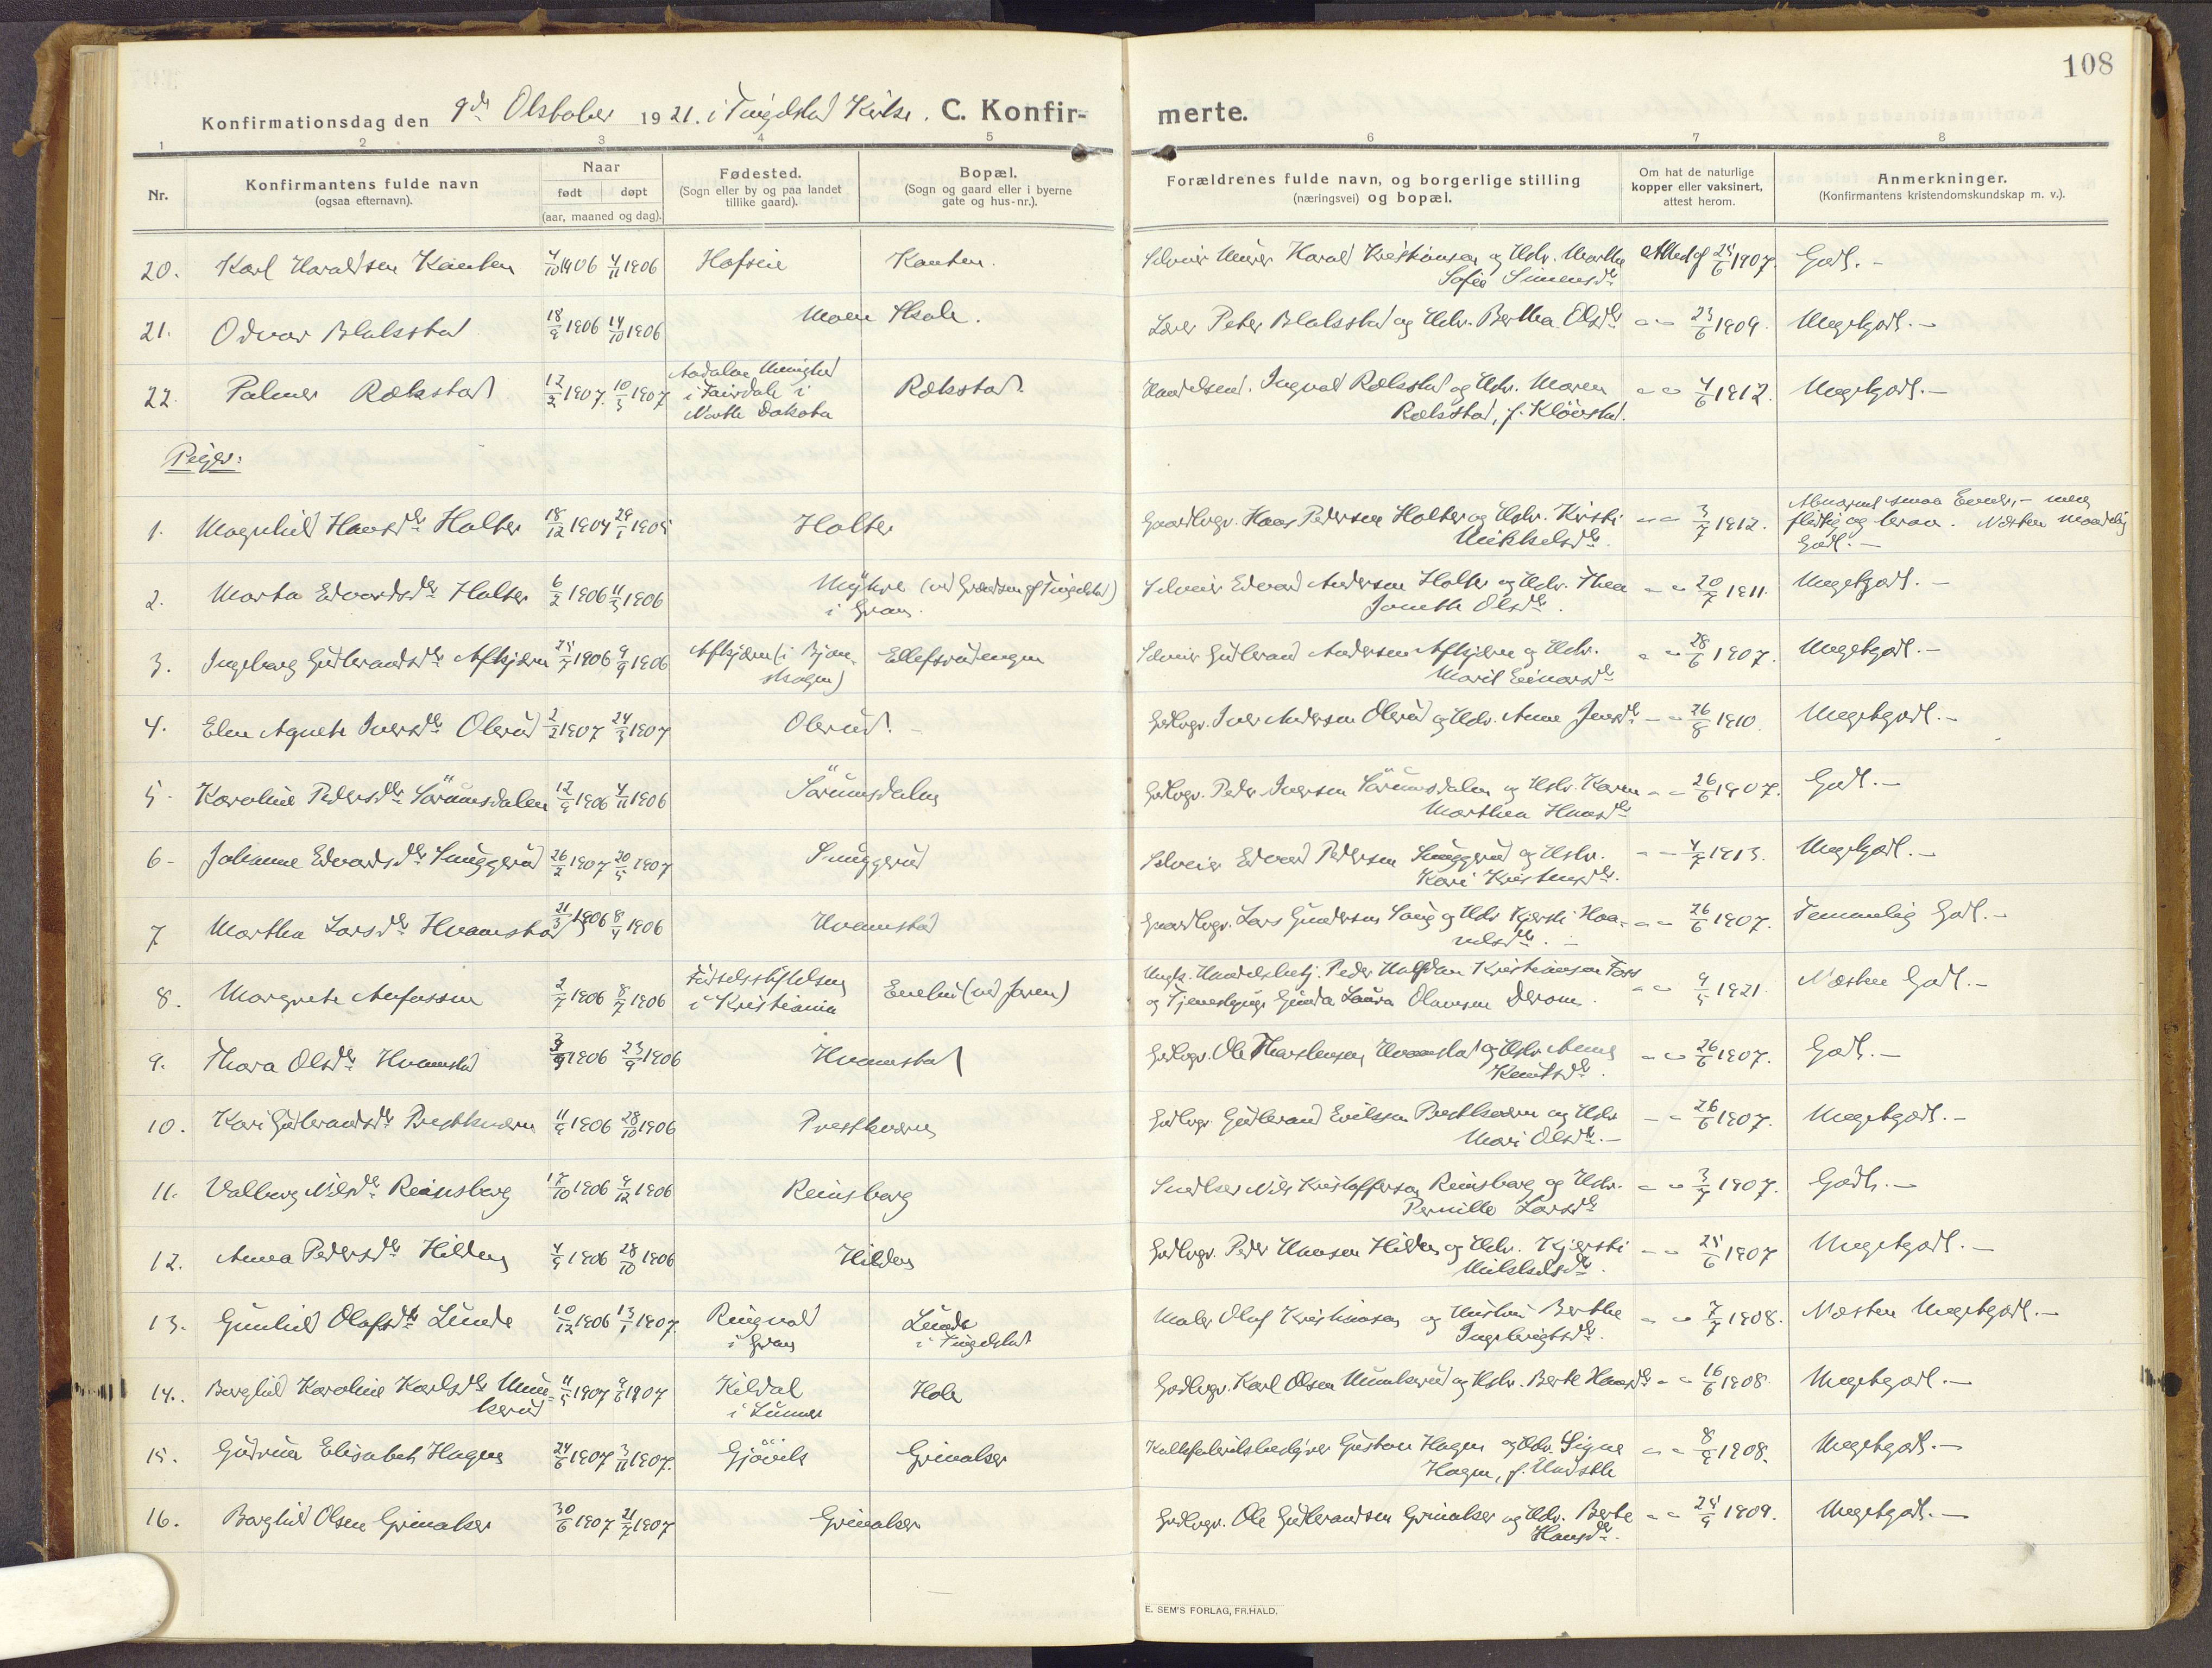 108
Konfirmationsdag den 9de Oktober 1921. i Tingelstad Kirke. C. Konfirmerte.
1 2 3 4 5 6 7 8
Nr. Konfirmantens fulde navn (ogsaa efternavn). Naar født døpt (aar, maaned og dag). Fødested. (Sogn eller by og paa landet tillike gaard). Bopæl. (Sogn og gaard eller i byerne gate og hus-nr.). Forældrenes fulde navn, og borgerlige stilling (næringsvei) og bopæl. Om hat de naturlige kopper eller vaksinert, attest herom. Anmerkninger. (Konfirmantens kristendomskundskap m. v.).
20. Karl Haraldsen Kanten 4/10 1906 4/11 1906 Hofseie Kanten. Selveier Harald Kristiansen og Hstr. Marthe Sofie Simensdtr Attest af 25/6 1907. Godt. -
21. Odvar Blakstad 18/9 1906 14/10 1906 Moen Skole. Lærer Peter Blakstad og Hstr. Bertha Olsdtr - - 23/6 1909. Megetgodt. -
22. Palmer Rækstad 12/2 1907. 10/3 1907 i Fairdale i North Dakota Rækstad. Ingvald Rækstad og Hstr. Maren Rækstad, f. Kløvstad. - - 4/6 1912. Megetgodt. -
Piger:
1. Magnhild Hansdtr Holter 18/12 1904 29/1 1905 Holter Gaardbrgr. Hans Pedersen Holter og Hstr. Kristi Mikkelsdtr. - - 3/7 1912. smaa Evner, - men flittig og brav. Næsten maadelig Godt. -
2. Marta Edvardsdtr Holter 6/2 1906 11/3 1906 Myhre (ved Grændsen af Tingelstad) i Gran. Selveier Edvard Andersen Holter og Hstr. Thea Janette Olsdtr. - - 20/7 1911. Megetgodt. -
3. Ingeborg Gudbrandsdtr Afkjærn 25/7 1906 9/9 1906 Afkjærn (i Bjoneskogen) Ellefsrudengen Selveier Gudbrand Andersen Afkjærn og Hstr. Marit Einarsdtr - - 28/6 1907. Megetgodt. -
4. Elen Agnete Iversdtr Olerud 2/2 1907 24/3 1907 Olerud. - Gdbrgr. Iver Andersen Olerud og Hstr. Anne Jensdtr - - 26/8 1910. Megetgodt. -
5. Karoline Pedersdtr Sörumsdalen 12/9 1906 4/11 1906 Sörumsdalen Gdbrgr. Peder Iversen Sörumsdalen og Hstr. Karen Marthea Hansdtr - - 26/6 1907. Godt. -
6 - Johanne Edvardsdtr Snuggerud 26/2 1907 20/5 1907 Snuggerud Selveier Edvard Pedersen Snuggerud og Hstr. Kari Kristensdtr. - - 4/7 1913. Megetgodt. -
7 Martha Larsdtr Hvamstad 21/3 1906 8/4 1906 Hvamstad Gaardbrgr. Lars Gundersen og Hstr Kjersti Haavelsdtr. - - - 26/6 1907. Temmelig Godt. -
8. Margrete Anfinssen 2/7 1906 8/7 1906 Födselsstiftelsen i Kristiania Enebu (ved Jaren) Ungk. Handelsbetj. Peder Halfdan Kristiansen Foss og Tjenestepige Gunda Laura Olavesen - - 9/5 1921. Næsten Godt. -
9. Thora Olsdtr Hvamstad 3/9 1906 23/9 1906 Hvamstad Gdbrgr. Ole Thorstensen Hvamstad og Hstr Anne Knutsdtr. - - 26/6 1907. Godt. -
10. Kari Gudbrandsdtr Prestkværn 11/9 1906 28/10 1906 Prestkværn Gdbrgr. Gudbrand Eriksen Prestkværn og Hstr Mari Olsdtr. - - - 26/6 1907. Megetgodt. -
11. Valborg Nilsdtr Reinsberg 17/10 1906 9/12 1906 Reinsberg Snedker Nils Kristoffersen Reinsberg og Hstr. Pernille Larsdtr - - 3/7 1907. Godt. -
12. Anna Pedersdtr Hilden 4/9 1906 28/10 1906 Hilden Gdbrgr. Peder Hansen Hilden og Hstr. Kjersti Mikkelsdtr. - - 25/6 1907 Megetgodt. -
13. Gunhild Olafsdtr Lunde 10/12 1906 13/1 1907. Ringvold i Gran Lunde i Tingelstad Maler Olaf Kristiansen og Hustru Berthe Ingebrigtsdtr. - - 7/7 1908. Næsten Megetgodt. -
14. Borghild Karoline Karlsdtr Munkerud 11/5 1907 9/6 1907 Kildal i Lunner Hole Gaardbrgr. Karl Olsen Munkerud og Hstr. Berte Hansdtr - - 16/6 1908. Megetgodt. -
15. Gudrun Elisabet Hagen 24/6 1907 3/11 1907. Gjövik Grinaker Kalkfabrikbestyrer Gustav Hagen og Hstr. Signe Hagen, f. - - 8/9 1908. Megetgodt. -
16. Borghild Olsen Grinaker 30/6 1907 21/7 1907 Grinaker Gdbrgr. Ole Gudbrandsen Grinaker og Hstr. Berte Hansdtr. - - 24/9 1909. Megetgodt. -
E. SEM'S FORLAG, FR.HALD.